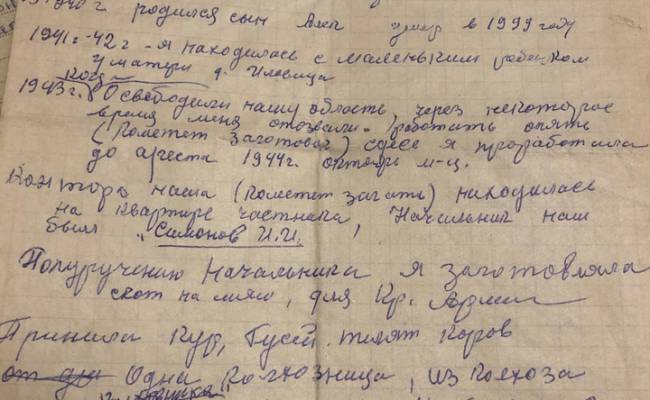 родился сын Алек умер в 1999 году
1941г-42г - я находилась с маленьким ребенком
у матери д. Иловица
1943г. Когда Освободили нашу область, через некоторое
время меня отозвали работать опять
(Кометет Заготовок) сдесь я проработала
до ареста 1944г. октябрь м-ц.
Контора наша (Кометет загать) находилась
на квартире частника, Начальник наш
был "Симонов И.И.
Попуручению Начальника я заготовляла
скот на мясо, для Кр. Армии
Принила Кур, Гусей, телят Коров
Одна Колхозница, из Колхоза